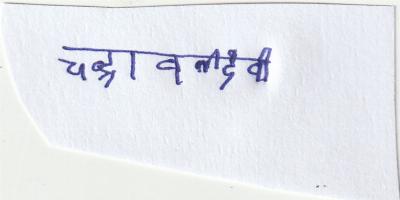 चन्द्रावतीदेवी